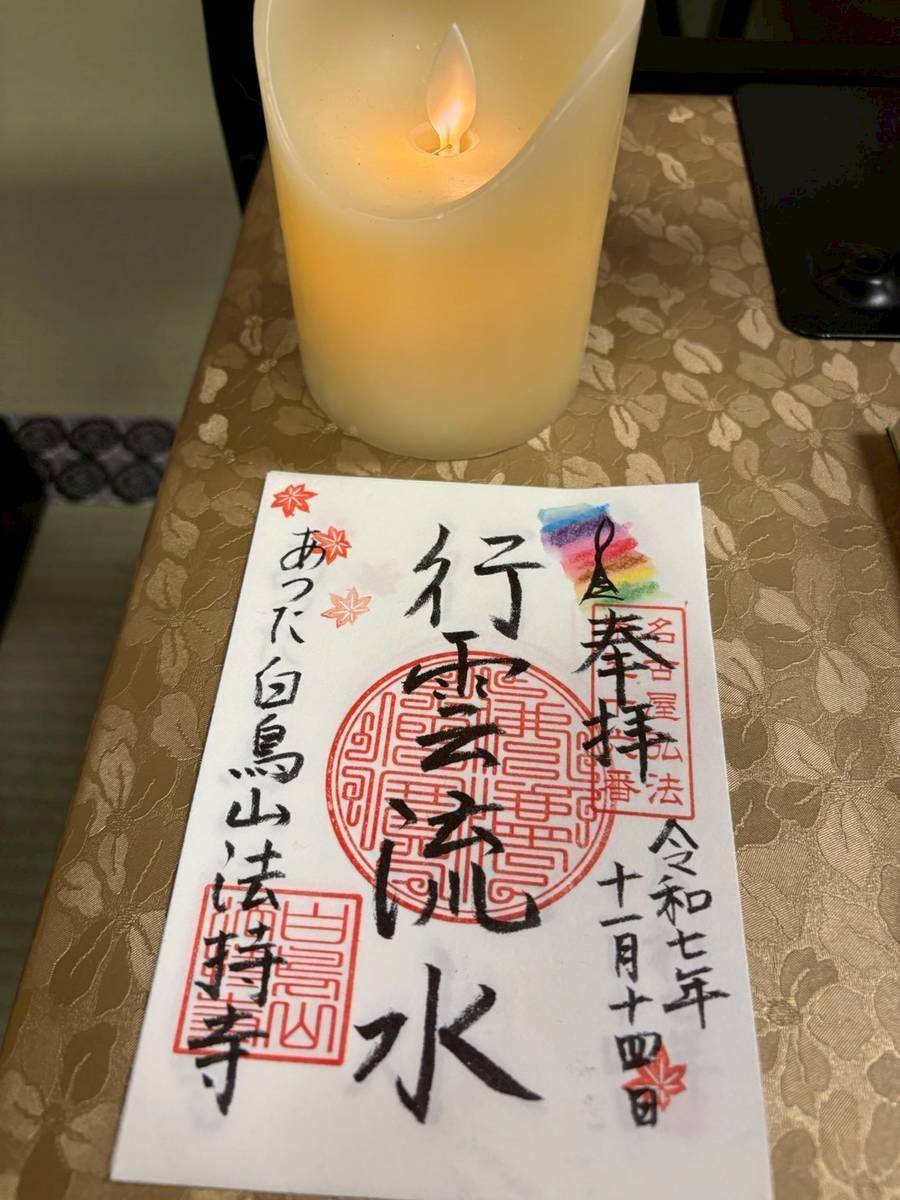 奉拝
名古屋弘法
令和七年
十一月十四日
行雲流水
あつた白鳥山法持寺
白鳥山